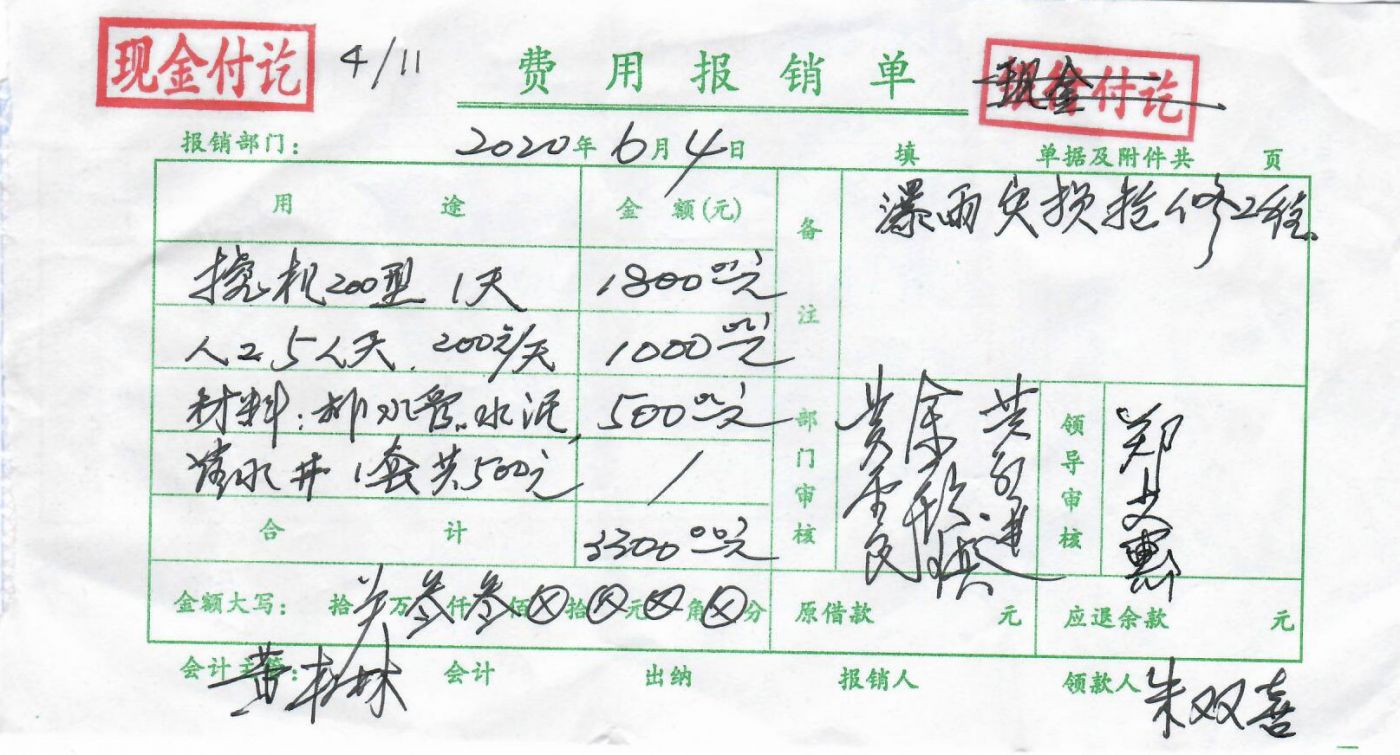 现金付讫 4/11 费用报销单 现金付讫
报销部门: 2020年6月4日 填 单据及附件共 页
用途 金额(元) 备注 瀑雨灾损抢修工程
挖机200型 1天 1800元
人工5人天. 200元/天 1000元
材料:排水管.水泥, 500元
清水井1套共500元 /
合计 3300元
部门审核 领导审核 郑文惠
金额大写: 拾 万叁仟叁佰⊗拾⊗元⊗角⊗分 原借款 元 应退余款 元
会计主管: 黄松林 会计 出纳 报销人 领款人 朱双喜